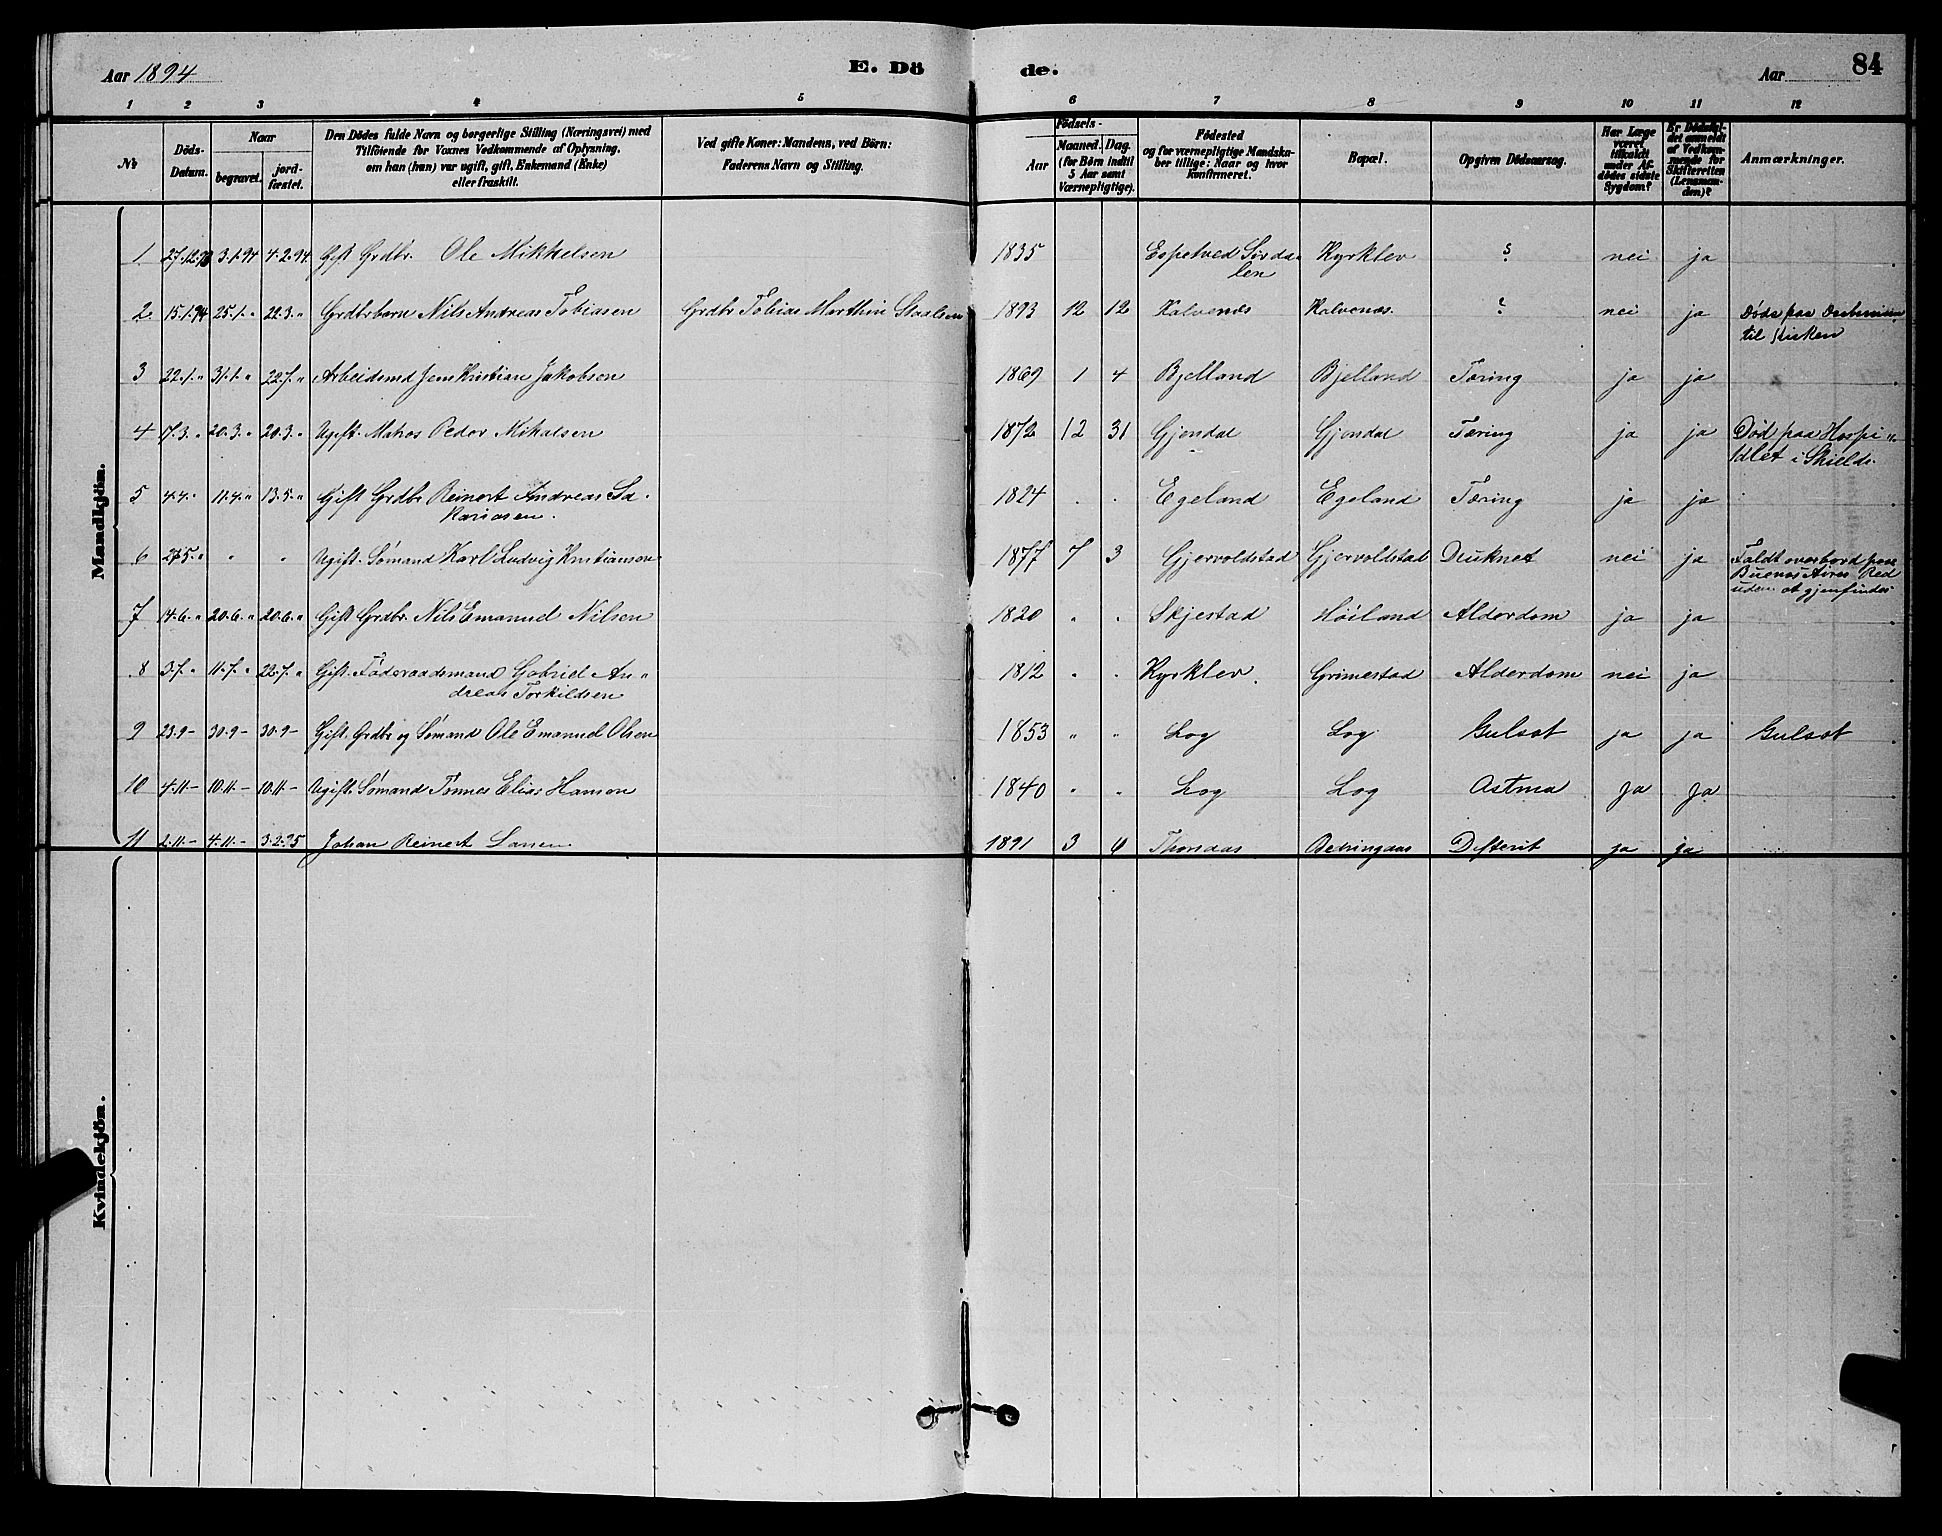 Aar 1894
E. Dö
de.
Aar
84
1 2 3 4 5 6 7 8 9 10 11 12
No
Döds-Datum.
Naar
begravet.
jord-fæstet.
Den Dödes fulde Navn og borgerlige Stilling (Næringsvei) med
Tilföiende for Voxnes Vedkommende af Oplysning,
om han (hun) var ugift, gift, Enkemand (Enke)
eller fraskilt.
Ved gifte Koner: Mandens, ved Börn:
Faderens Navn og Stilling.
Födsels-
Aar
Maaned. Dag.
(for Börn indtil
5 Aar samt
Værnepligtige).
Födested
og for værnepligtige Mandska-
ber tillige: Naar og hvor
konfirmeret.
Bopæl.
Opgiven Dödsaarsag.
Har Læge
været
tilkaldt
under Af-
dödes sidste
Sygdom?
Er Dödsfal-
det anmeldt
af Vedkom-
mende for
Skifteretten
(Lensman-
den)?
Anmærkninger.
Mandkjön.
1 27.12.93 3.1.94 4.2.94 Gift Grdbr. Ole Mikkelsen 1835 Espetved Sirda-
len Kyrklev ? nei ja
2 15.1.94 25.1. " 22.3. " Grdbrbarn Nils Andreas Tobiasen Grdbr Tobias Marthin 1893 12 12 Kalvenæs Kalvenæs. ? nei ja Døde paa
til Kirken
3 22.1. " 31.1. " 22.7. " Arbeidsmd Jens Kristian Jakobsen 1869 1 4 Bjelland Bjelland Tæring ja ja
4 17.3. " 20.3. " 20.3. " Ugift. Matros Peder Mikalsen 1872 12 31 Gjendal Gjendal Tæring ja ja Død paa Hospi-
talet i Shields.
5 4.4. " 11.4. " 13.5. " Gift Grdbr Reinert Andreas Sa-
kariasen. 1824 Egeland Egeland Tæring ja ja
6 27.5. " " " Ugift. Sømand Karl Ludvig Kristiansen 1877 7 3 Gjervoldstad Gjervoldstad Druknet nei ja Faldt overbord paa
Buenos Aires Red
uden at gjenfindes
7 14.6. " 20.6. " 20.6. " Gift Grdbr. Nils Emanuel Nilsen 1820 " " Skjestad Høiland Alderdom ja ja
8 3.7. " 11.7. " 22.7. " Gift. Føderaadsmand Gabriel An-
dreas Torkildsen 1812 " " Kyrklev. Grimestad Alderdom nei ja
9 23.9 - 30.9 - 30.9 - Gift. Grdbr og Sømand Ole Emanuel Olsen 1853 " " Log Log Gulsot ja ja Gulsot
10 4.11 - 10.11 - 10.11 - Ugift. Sømand Tønnes Elias Hansen 1840 " " Log Log Astma ja ja
11 2.11 - 4.11 - 3.2.95 Johan Reinert Larsen 1891 3 4 Difterit ja ja
Kvindekjön.